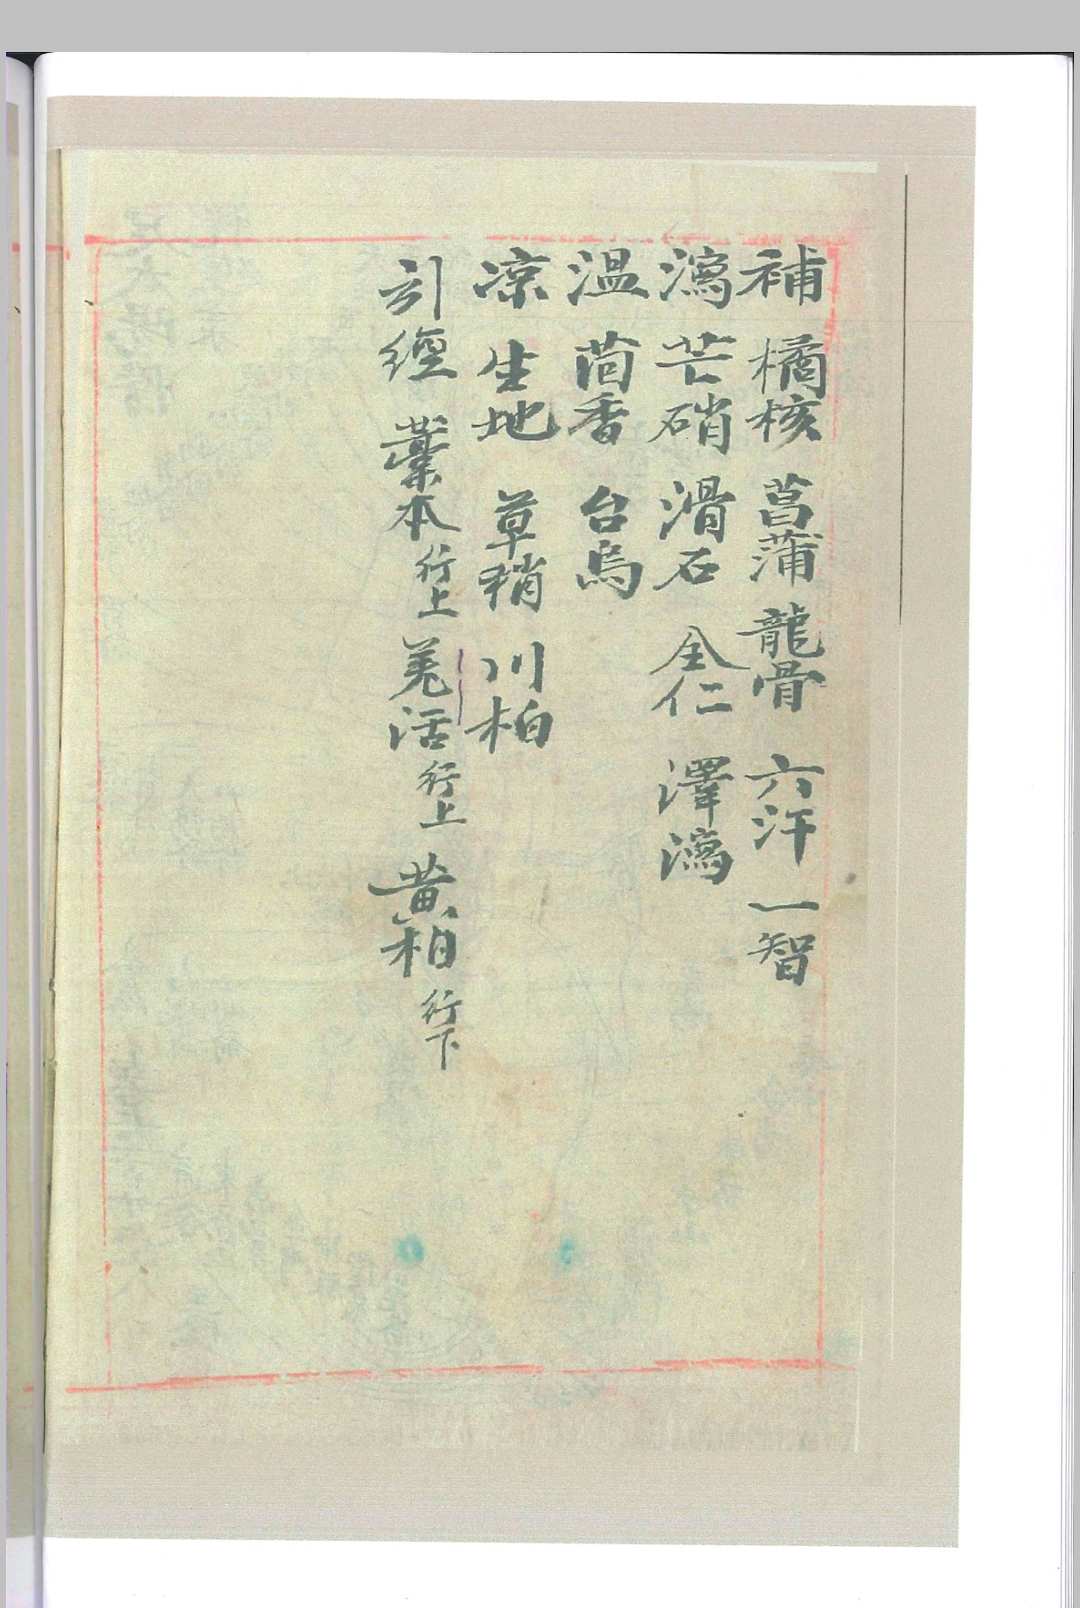 補 橘核 菖蒲 龍骨 六汗 一智
瀉 芒硝 滑石 全仁 澤瀉
溫 茴香 台烏
凉 生地 草稍 川柏
引經 藁本行上 羗活行上 黄柏行下